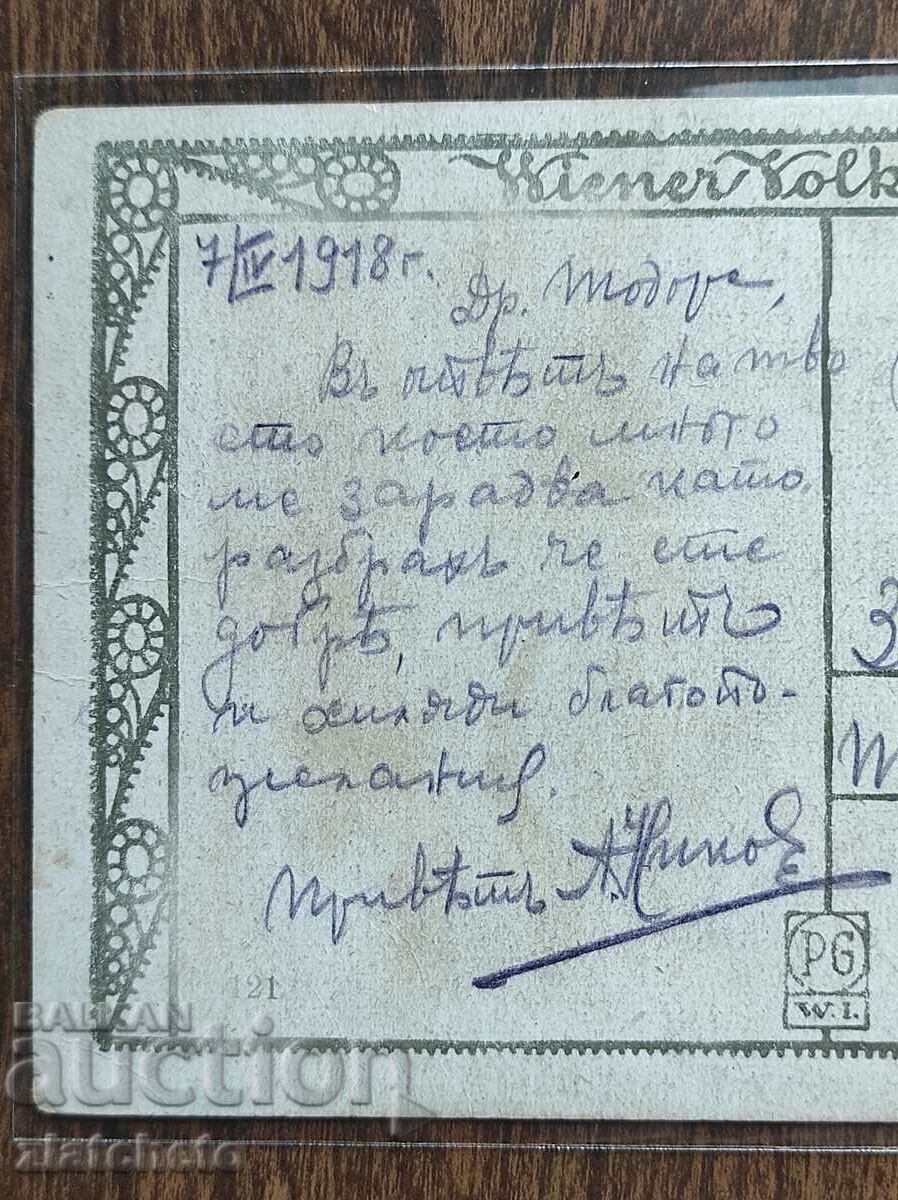 Wiener Volk
7/IV 1918 г.
Др. Тодоре,
Въ отвѣтъ на тво
ето което много
ме зарадва като
разбрахъ че сте
добрѣ, привѣтъ
и хиляди благопо-
желания.
Привѣтъ А. Нинов
3
121
PG
W.I.
BALKAN
auction
zlatcheto